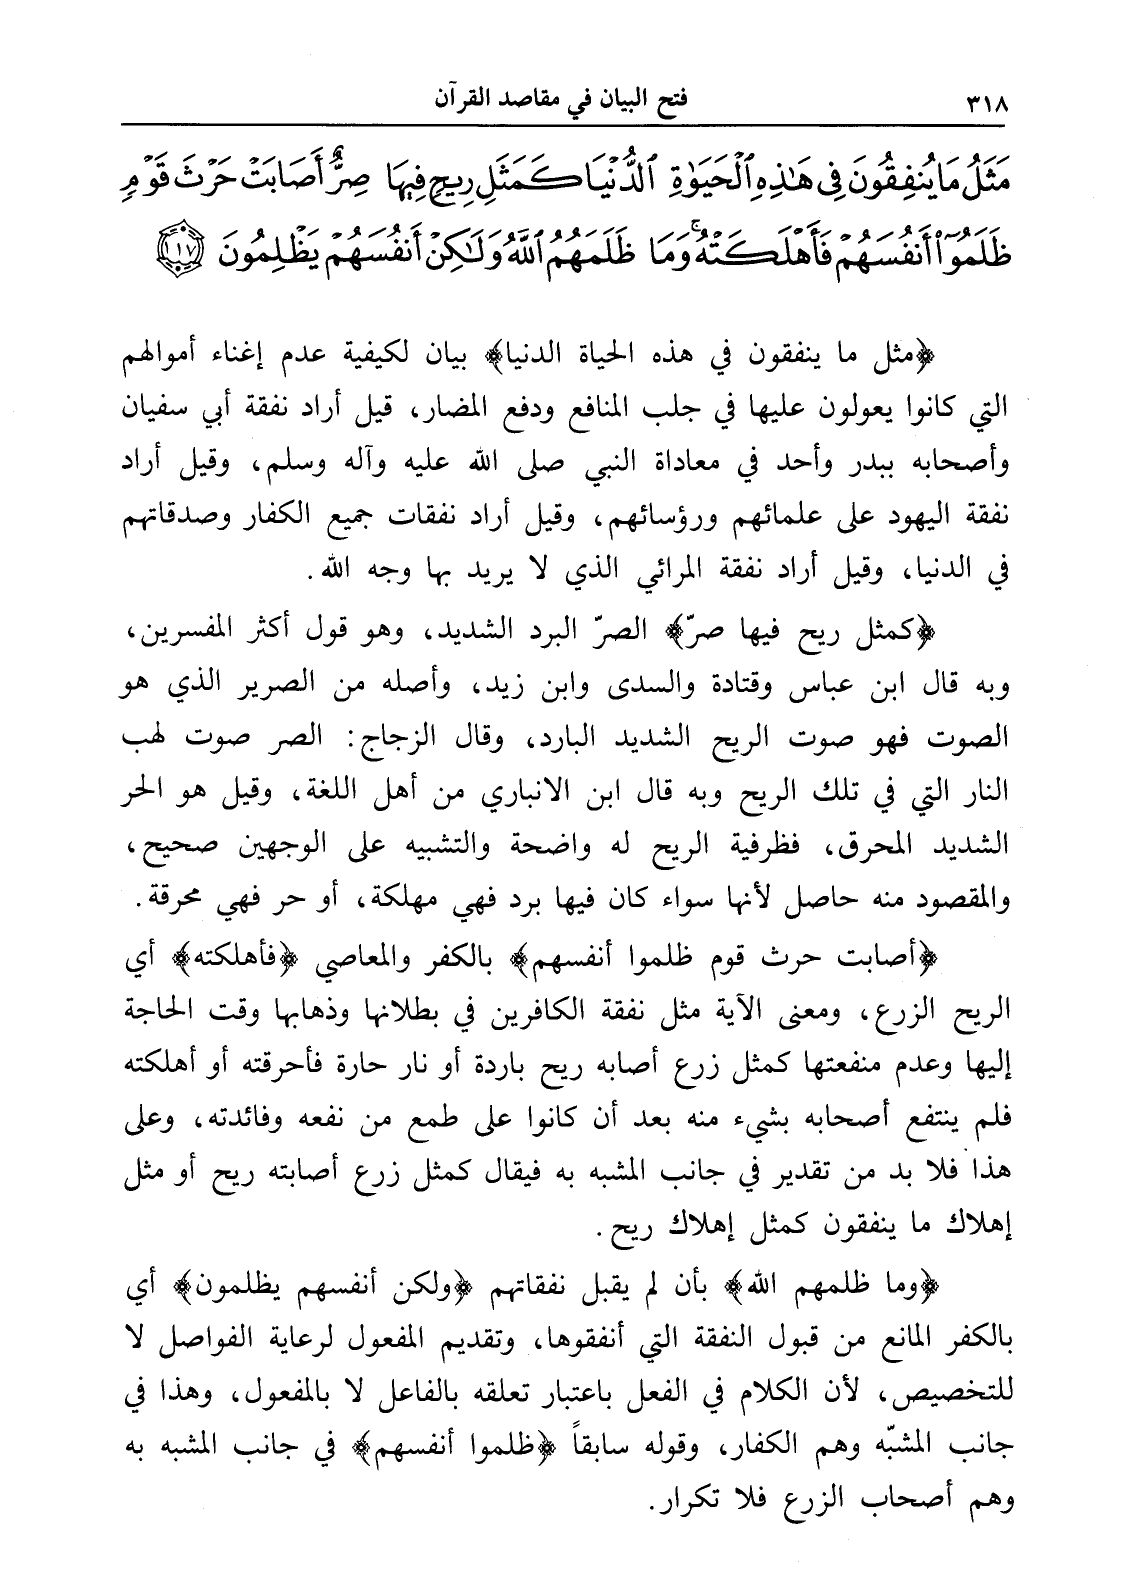 ٣١٨ فتح البيان في مقاصد القرآن
مَثَلُ مَا يُنفِقُونَ فِي هَٰذِهِ الْحَيَوٰةِ الدُّنْيَا كَمَثَلِ رِيحٍ فِيهَا صِرٌّ أَصَابَتْ حَرْثَ قَوْمٍ
ظَلَمُوٓا۟ أَنفُسَهُمْ فَأَهْلَكَتْهُ ۚ وَمَا ظَلَمَهُمُ اللَّهُ وَلَٰكِنْ أَنفُسَهُمْ يَظْلِمُونَ ١١٧
﴿مثل ما ينفقون في هذه الحياة الدنيا﴾ بيان لكيفية عدم إغناء أموالهم
التي كانوا يعولون عليها في جلب المنافع ودفع المضار، قيل أراد نفقة أبي سفيان
وأصحابه ببدر وأحد في معاداة النبي صلى الله عليه وآله وسلم، وقيل أراد
نفقة اليهود على علمائهم ورؤسائهم، وقيل أراد نفقات جميع الكفار وصدقاتهم
في الدنيا، وقيل أراد نفقة المرائي الذي لا يريد بها وجه الله.
﴿كمثل ريح فيها صرّ﴾ الصرّ البرد الشديد، وهو قول أكثر المفسرين،
وبه قال ابن عباس وقتادة والسدى وابن زيد، وأصله من الصرير الذي هو
الصوت فهو صوت الريح الشديد البارد، وقال الزجاج: الصر صوت لهب
النار التي في تلك الريح وبه قال ابن الانباري من أهل اللغة، وقيل هو الحر
الشديد المحرق، فظرفية الريح له واضحة والتشبيه على الوجهين صحيح،
والمقصود منه حاصل لأنها سواء كان فيها برد فهي مهلكة، أو حر فهي محرقة.
﴿أصابت حرث قوم ظلموا أنفسهم﴾ بالكفر والمعاصي ﴿فأهلكته﴾ أي
الريح الزرع، ومعنى الآية مثل نفقة الكافرين في بطلانها وذهابها وقت الحاجة
إليها وعدم منفعتها كمثل زرع أصابه ريح باردة أو نار حارة فأحرقته أو أهلكته
فلم ينتفع أصحابه بشيء منه بعد أن كانوا على طمع من نفعه وفائدته، وعلى
هذا فلا بد من تقدير في جانب المشبه به فيقال كمثل زرع أصابته ريح أو مثل
إهلاك ما ينفقون كمثل إهلاك ريح.
﴿وما ظلمهم الله﴾ بأن لم يقبل نفقاتهم ﴿ولكن أنفسهم يظلمون﴾ أي
بالكفر المانع من قبول النفقة التي أنفقوها، وتقديم المفعول لرعاية الفواصل لا
للتخصيص، لأن الكلام في الفعل باعتبار تعلقه بالفاعل لا بالمفعول، وهذا في
جانب المشبّه وهم الكفار، وقوله سابقاً ﴿ظلموا أنفسهم﴾ في جانب المشبه به
وهم أصحاب الزرع فلا تكرار.